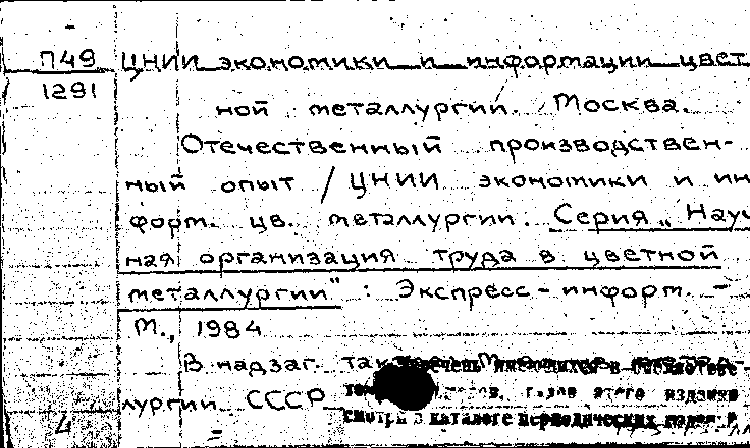 П49 ЦНИИ экономики и информации цвет
1291
ной металлургии. Москва.
Отечественный производствен-
ный опыт / ЦНИИ экономики и ин
форм. цв. металлургии. Серия „Науч
ная организация труда в цветной
металлургии" : Экспресс-информ. -
М., 1984
В надзаг. так
лургии СССР этого издания
смотри в каталоге периодических
4